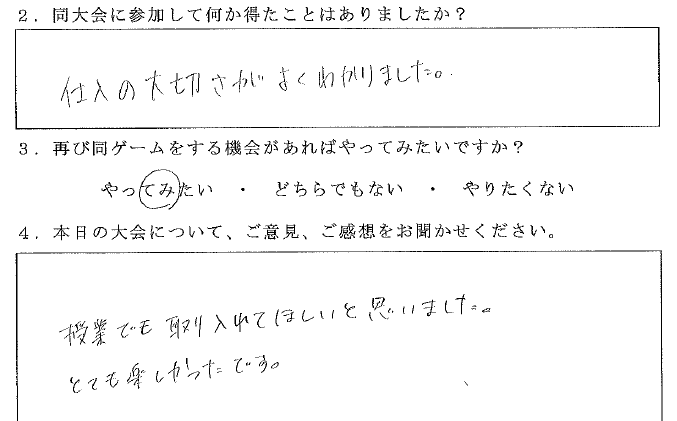 2．同大会に参加して何か得たことはありましたか？
仕入の大切さがよくわかりました。
3．再び同ゲームをする機会があればやってみたいですか？
やってみたい ・ どちらでもない ・ やりたくない
4．本日の大会について、ご意見、ご感想をお聞かせください。
授業でも取り入れてほしいと思いました。
とても楽しかったです。